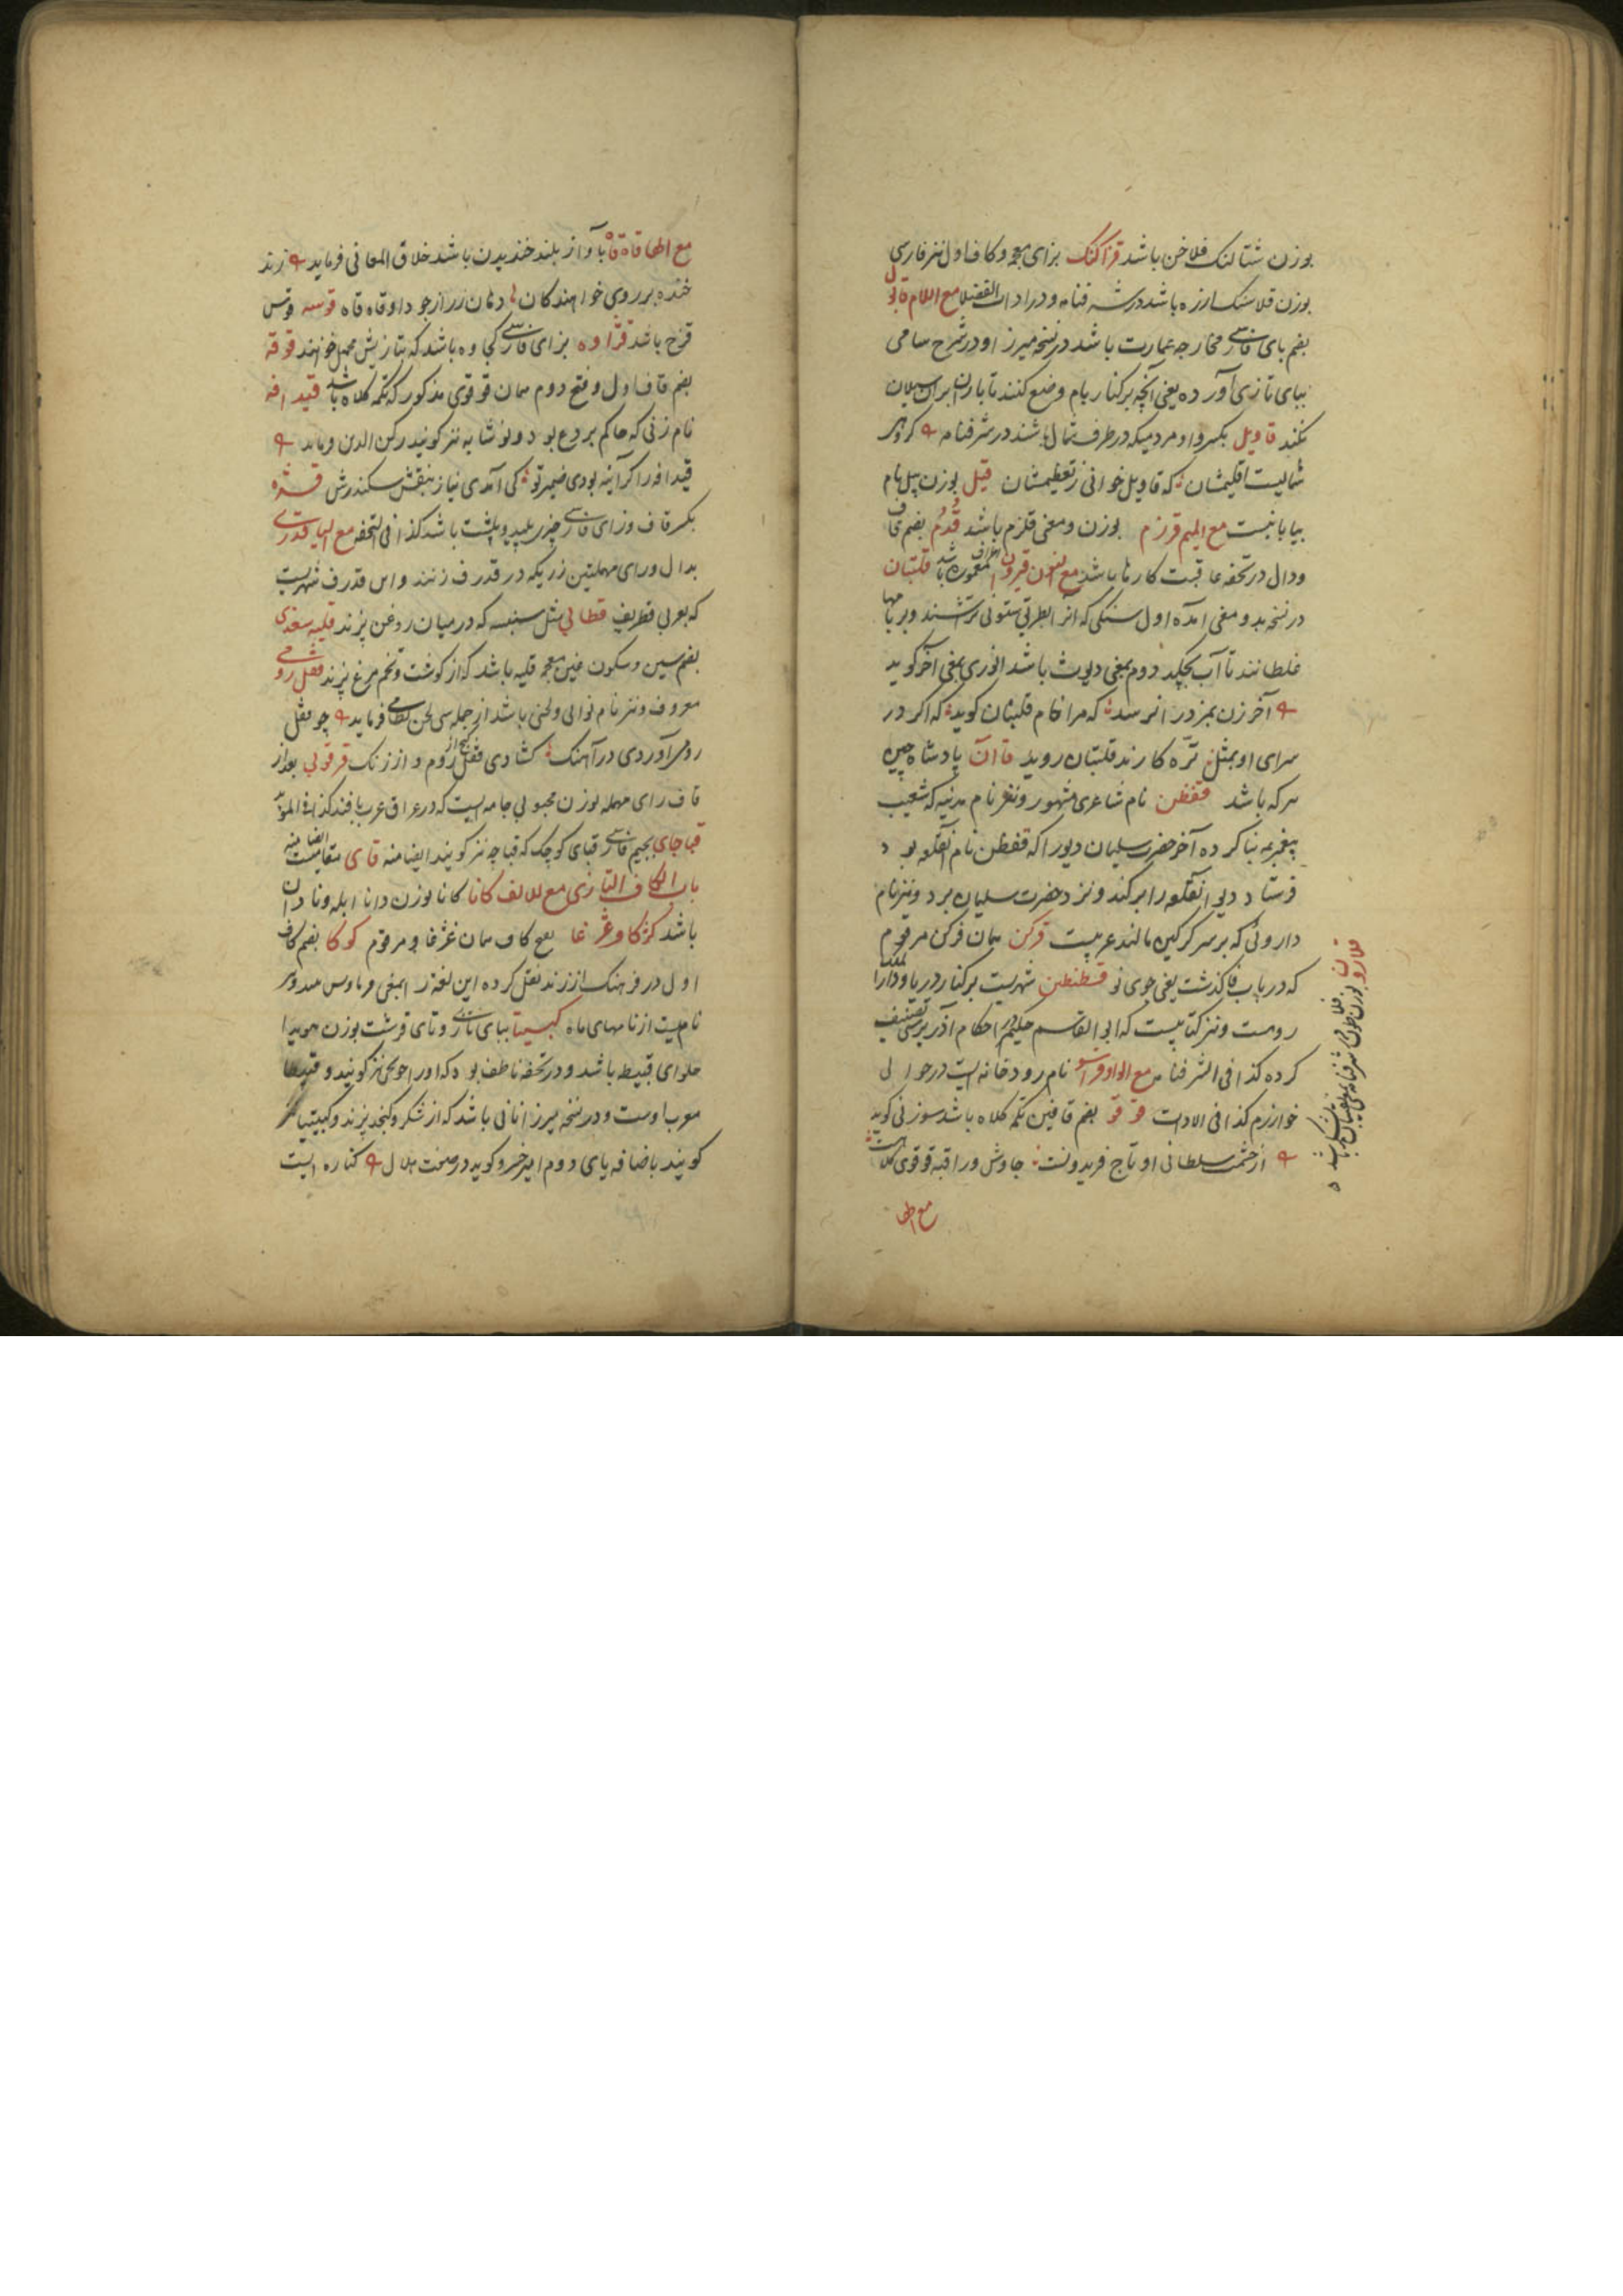 بوزن شتالنک فلاخن باشد قزاکنک بزای معجمه و کاف اول نیز فارسی
بوزن قلاسنک ارزه باشد در شرفنامه و در ادات الفضلا مع اللام قابول
بضم بای فارسی مخارجه عمارت باشد در نسخه میرزا و در شرح سامی
ببای تازی آورده یعنی آنچه بر کنار بام وضع کنند تا باران
نکند قاویل بکسر واو مردمیکه در طرف شمال باشند در شرفنامه
شمالیست اقلیمشان که قاویل خوانی ز تعظیمشان قیل بوزن پیل نام
بیابانیست مع المیم قرزم بوزن و معنی قلزم باشد قدم بضم قاف
و دال در تحفه عاقبت کارها باشد مع النون قیروان اطراف معموره باشد قلتبان
در نسخه بدو معنی آمده اول سنکی که آنرا بطریق ستونی تراشند و بر بامها
غلطانند تا آب نچکد دوم بمعنی دیوث باشد انوری بمعنی آخر گوید
آخر زن بمزد را نرسد که مرا خام قلتبان کوید که اکر در
سرای او بمثل تره کارند قلتبان روید قاآن پادشاه چین
هر که باشد قفطن نام شاعری مشهور و نیز نام مدینه که شعیب
پیغمبر بنا کرده آخر حضرت سلیمان دیو را که قفطن نام آنقلعه بود
فرستاد دیو آنقلعه را برکند و نزد حضرت سلیمان برد و نیز نام
داروئی که بر سر کرکین مالند عربیست قرکن همان فرکن مرقوم
که در باب فا کذشت یعنی جوی نو قسطنطین شهریست بر کنار دریا و دارالملک
رومست و نیز کتابیست که ابو القاسم حکیم در احکام آذر پرستی تصنیف
کرده کذا فی الشرفنامه مع الواو قراسو نام رودخانه ایست در حوالی
خوارزم کذا فی الادات قوقو بضم قافین تکمه کلاه باشد سوزنی کوید
از حشمت سلطانی او تاج فریدونست جاوش ورا قبه قوقوی کلاهست
مع الها
قلارون بوزن فلاطون در شرفنامه
مع الها قاه قاه بآواز بلند خندیدن باشد خلاق المعانی فرماید زند
خنده بر روی خواهندکان دهان زر از جود او قاه قاه قوسه قوس
قزح باشد قژاوه بزای فارسی کجاوه باشد که بتازیش محمل خوانند قوقه
بضم قاف اول و فتح دوم همان قوقوی مذکور که تکمه کلاه باشد قیدافه
نام زنی که حاکم بردع بود و نوشابه نیز کویند رکن الدین فرماید
قیدافه را کر آینه بودی ضمیر تو کی آمدی نیاز بنقش سکندرش قژه
بکسر قاف و زای فارسی چیز پلید و پلشت باشد کذا فی التحفه مع الیا قدری
بدال و رای مهملتین زریکه در قدرف زنند و این قدرف شهریست
که بعربی قطریف قطابی مثل سنبسه که در میان روغن پزند قلیه سغدی
بضم سین و سکون غین معجمه قلیه باشد که از کوشت و تخم مرغ پزند قفل رومی
معروف و نیز نام نوائی و لحنی باشد از جمله سی لحن نظامی فرماید چو قفل
رومی آوردی در آهنک کشادی قفل کنج از روم و از زنک قرقوبی بعد از
قاف رای مهمله بوزن محبوبی جامه ایست که در عراق عرب بافند کذا فی المؤید
قباجای بجیم فارسی قبای کوچک که قباچه نیز کویند ایضا منه قای مقامیست ایضا منه
باب الکاف التازی مع الالف کانا کانا بوزن دانا ابله و نادان
باشد کژکاو غژغا بفتح کاف همان غژغا و مرقوم کوکا بضم کاف
اول در فرهنک از زند نقل کرده این لغة را بمعنی
نامیست از نامهای ماه کبیتا ببای تازی و تای قرشت بوزن هویدا
حلوای قبیط باشد و در تحفه ناطف بود که او را جوحی نیز کویند و قبیطا
معرب اوست و در نسخه میرزا نانی باشد که از شکر و کنجد پزند و کبیتیا نیز
کویند باضافه یای دوم امیر خسرو کوید در صفت هلال کناره ایست